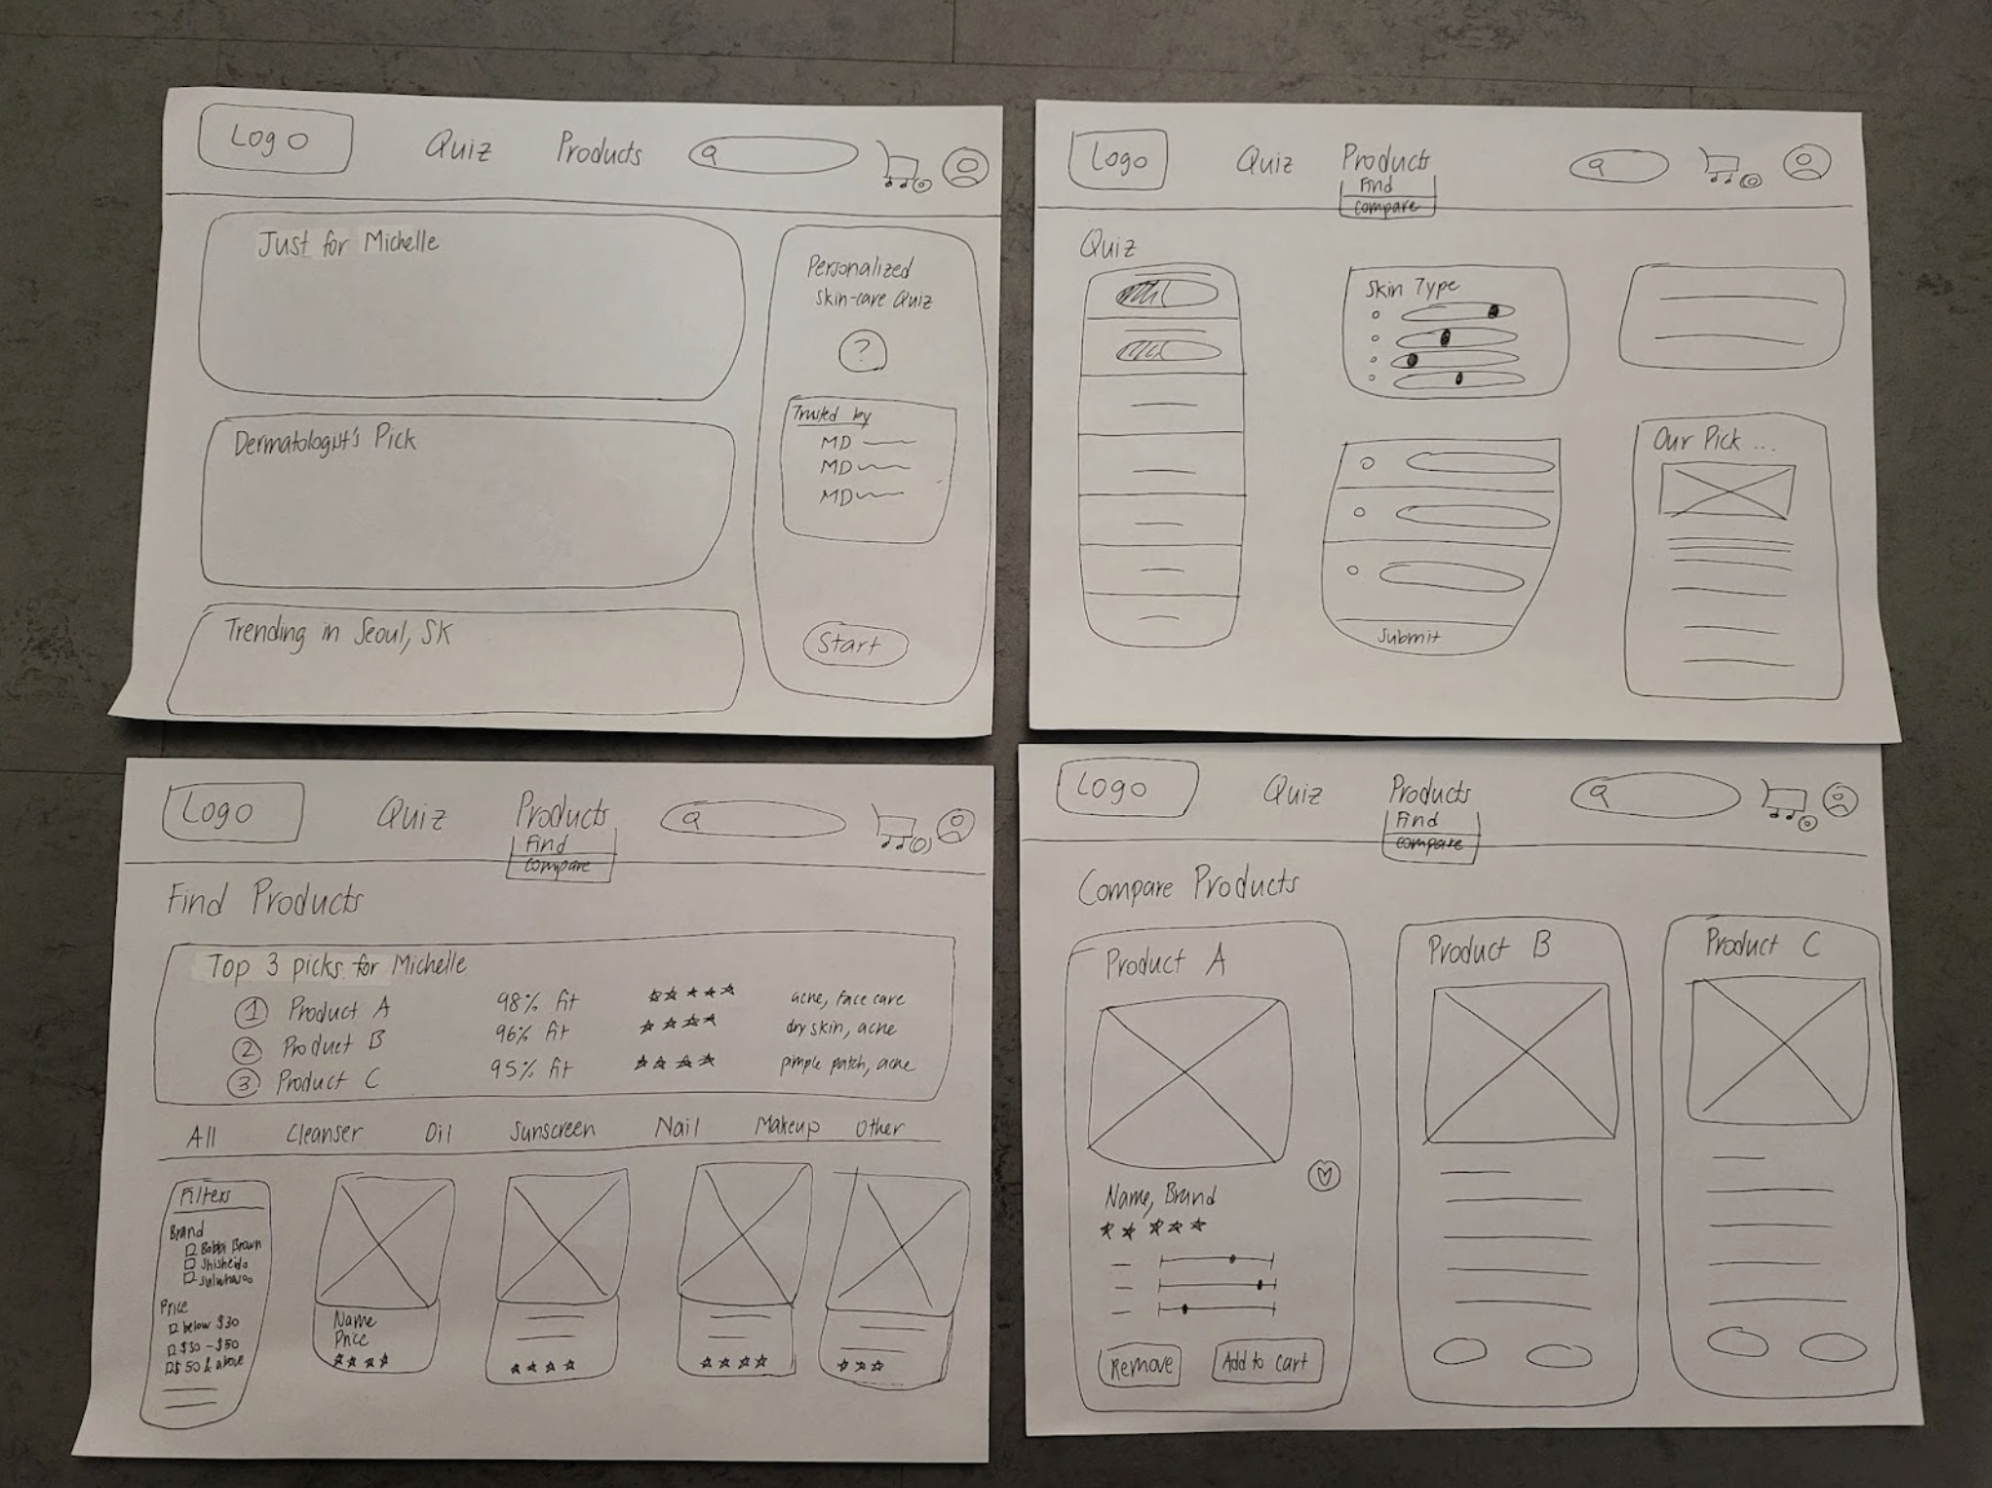 Logo
Quiz
Products
Just for Michelle
Personalized
skin-care Quiz
?
Trusted by
MD
MD
MD
Start
Dermatologist's Pick
Trending in Seoul, SK
Logo
Quiz
Products
Find
Compare
Quiz
Skin Type
Submit
Our Pick ...
Logo
Quiz
Products
Find
Compare
Find Products
Top 3 picks for Michelle
1 Product A 98% fit acne, face care
2 Product B 96% fit dry skin, acne
3 Product C 95% fit pimple patch, acne
All Cleanser Oil Sunscreen Nail Makeup Other
Filters
Brand
Bobbi Brown
Shisheido
Sulwhasoo
Price
below $30
$30 - $50
$50 & above
Name
Price
Logo
Quiz
Products
Find
Compare
Compare Products
Product A
Name, Brand
Remove
Add to cart
Product B
Product C